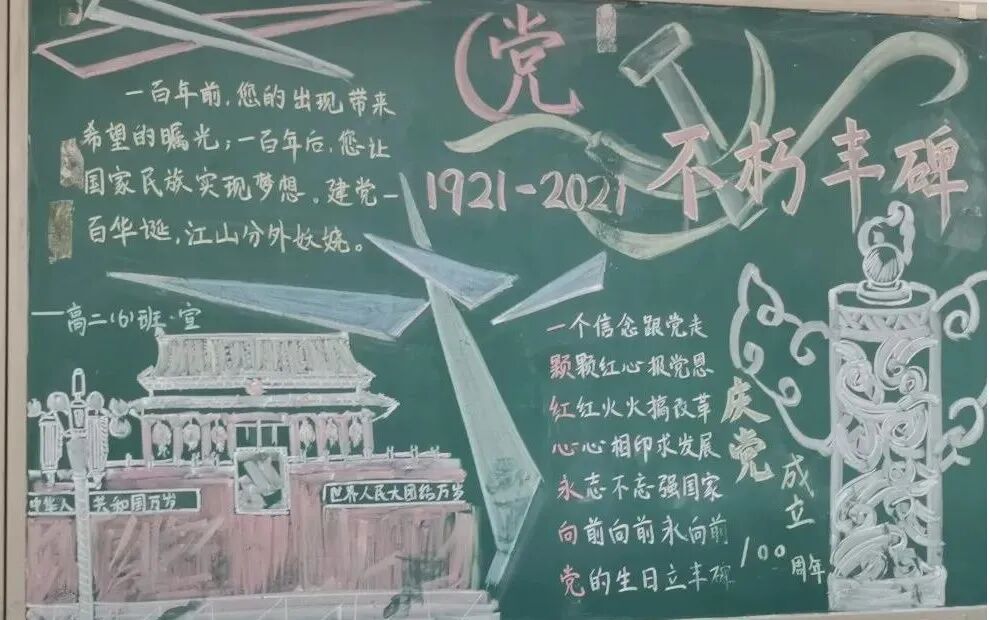 党
不朽丰碑
1921-2021
一百年前,您的出现带来
希望的曙光;一百年后,您让
国家民族实现梦想。建党一
百华诞,江山分外妖娆。
——高二(6)班·宣
中华人民共和国万岁
世界人民大团结万岁
一个信念跟党走
颗颗红心报党恩
红红火火搞改革
心心相印求发展
永志不忘强国家
向前向前永向前
党的生日立丰碑
庆党
成立
100
周年